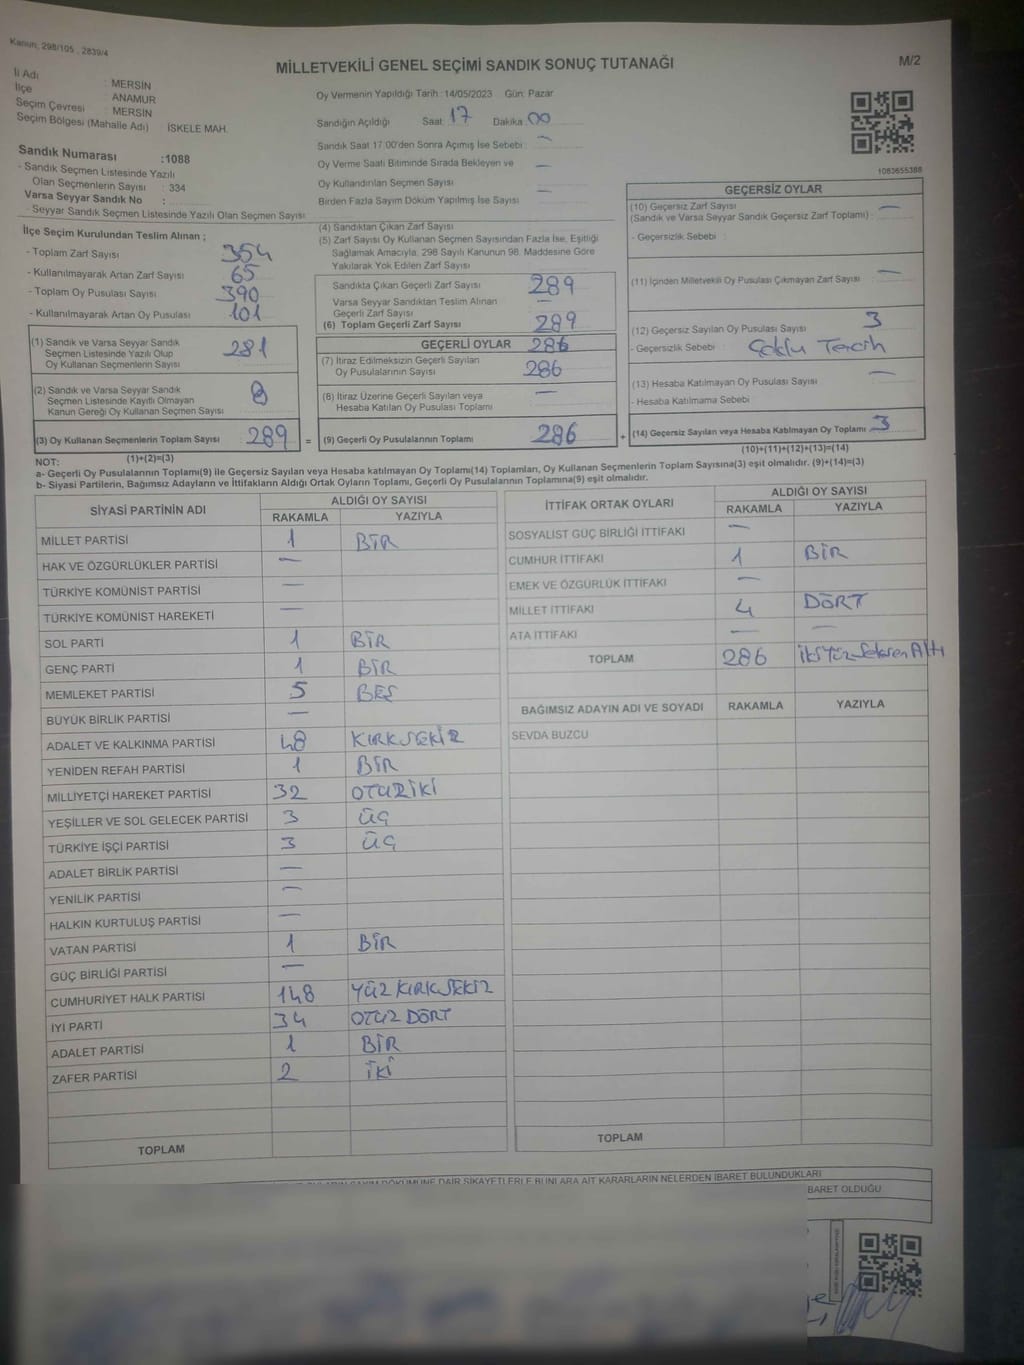 Kanun, 298/105 , 2839/4
MİLLETVEKİLİ GENEL SEÇİMİ SANDIK SONUÇ TUTANAĞI
M/2
İl Adı : MERSİN
İlçe : ANAMUR
Seçim Çevresi : MERSİN
Seçim Bölgesi (Mahalle Adı) İSKELE MAH.
Oy Vermenin Yapıldığı Tarih : 14/05/2023 Gün: Pazar
Sandığın Açıldığı Saat: 17 Dakika: 00
Sandık Saat 17:00'den Sonra Açımış İse Sebebi : —
Oy Verme Saati Bitiminde Sırada Bekleyen ve —
Oy Kullandırılan Seçmen Sayısı
Birden Fazla Sayım Döküm Yapılmış İse Sayısı —
1083655388
Sandık Numarası :1088
- Sandık Seçmen Listesinde Yazılı
Olan Seçmenlerin Sayısı : 334
Varsa Seyyar Sandık No :
- Seyyar Sandık Seçmen Listesinde Yazılı Olan Seçmen Sayısı
İlçe Seçim Kurulundan Teslim Alınan ;
- Toplam Zarf Sayısı 354
- Kullanılmayarak Artan Zarf Sayısı 65
- Toplam Oy Pusulası Sayısı 390
- Kullanılmayarak Artan Oy Pusulası 101
(1) Sandık ve Varsa Seyyar Sandık
Seçmen Listesinde Yazılı Olup
Oy Kullanan Seçmenlerin Sayısı 281
(2) Sandık ve Varsa Seyyar Sandık
Seçmen Listesinde Kayıtlı Olmayan
Kanun Gereği Oy Kullanan Seçmen Sayısı 8
(3) Oy Kullanan Seçmenlerin Toplam Sayısı 289 =
(1)+(2)=(3)
(4) Sandıktan Çıkan Zarf Sayısı
(5) Zarf Sayısı Oy Kullanan Seçmen Sayısından Fazla İse, Eşitliği
Sağlamak Amacıyla, 298 Sayılı Kanunun 98. Maddesine Göre
Yakılarak Yok Edilen Zarf Sayısı
Sandıkta Çıkan Geçerli Zarf Sayısı 289
Varsa Seyyar Sandıktan Teslim Alınan
Geçerli Zarf Sayısı —
(6) Toplam Geçerli Zarf Sayısı 289
GEÇERLİ OYLAR 286
(7) İtiraz Edilmeksizin Geçerli Sayılan
Oy Pusulalarının Sayısı 286
(8) İtiraz Üzerine Geçerli Sayılan veya
Hesaba Katılan Oy Pusulası Toplamı —
(9) Geçerli Oy Pusulalarının Toplamı 286 +
GEÇERSİZ OYLAR
(10) Geçersiz Zarf Sayısı —
(Sandık ve Varsa Seyyar Sandık Geçersiz Zarf Toplamı) :
- Geçersizlik Sebebi :
(11) İçinden Milletvekili Oy Pusulası Çıkmayan Zarf Sayısı —
(12) Geçersiz Sayılan Oy Pusulası Sayısı 3
- Geçersizlik Sebebi : Çoklu Tercih
(13) Hesaba Katılmayan Oy Pusulası Sayısı —
- Hesaba Katılmama Sebebi
(14) Geçersiz Sayılan veya Hesaba Katılmayan Oy Toplamı 3
(10)+(11)+(12)+(13)=(14)
NOT:
a- Geçerli Oy Pusulalarının Toplamı(9) ile Geçersiz Sayılan veya Hesaba katılmayan Oy Toplamı(14) Toplamları, Oy Kullanan Seçmenlerin Toplam Sayısına(3) eşit olmalıdır. (9)+(14)=(3)
b- Siyasi Partilerin, Bağımsız Adayların ve İttifakların Aldığı Ortak Oyların Toplamı, Geçerli Oy Pusulalarının Toplamına(9) eşit olmalıdır.
SİYASİ PARTİNİN ADI ALDIĞI OY SAYISI
RAKAMLA YAZIYLA
MİLLET PARTİSİ 1 BİR
HAK VE ÖZGÜRLÜKLER PARTİSİ —
TÜRKİYE KOMÜNİST PARTİSİ —
TÜRKİYE KOMÜNİST HAREKETİ —
SOL PARTİ 1 BİR
GENÇ PARTİ 1 BİR
MEMLEKET PARTİSİ 5 BEŞ
BÜYÜK BİRLİK PARTİSİ —
ADALET VE KALKINMA PARTİSİ 48 KIRKSEKİZ
YENİDEN REFAH PARTİSİ 1 BİR
MİLLİYETÇİ HAREKET PARTİSİ 32 OTUZİKİ
YEŞİLLER VE SOL GELECEK PARTİSİ 3 ÜÇ
TÜRKİYE İŞÇİ PARTİSİ 3 ÜÇ
ADALET BİRLİK PARTİSİ —
YENİLİK PARTİSİ —
HALKIN KURTULUŞ PARTİSİ —
VATAN PARTİSİ 1 BİR
GÜÇ BİRLİĞİ PARTİSİ —
CUMHURİYET HALK PARTİSİ 148 YÜZ KIRKSEKİZ
İYİ PARTİ 34 OTUZ DÖRT
ADALET PARTİSİ 1 BİR
ZAFER PARTİSİ 2 İKİ
TOPLAM
İTTİFAK ORTAK OYLARI ALDIĞI OY SAYISI
RAKAMLA YAZIYLA
SOSYALIST GÜÇ BİRLİĞİ İTTİFAKI —
CUMHUR İTTİFAKI 1 BİR
EMEK VE ÖZGÜRLÜK İTTİFAKI —
MİLLET İTTİFAKI 4 DÖRT
ATA İTTİFAKI — —
TOPLAM 286 İkiYüz Seksen Altı
BAĞIMSIZ ADAYIN ADI VE SOYADI RAKAMLA YAZIYLA
SEVDA BUZCU
TOPLAM
DÖKÜMÜNE DAİR ŞİKAYETLERLE BUNLARA AİT KARARLARIN NELERDEN İBARET BULUNDUKLARI
BARET OLDUĞU